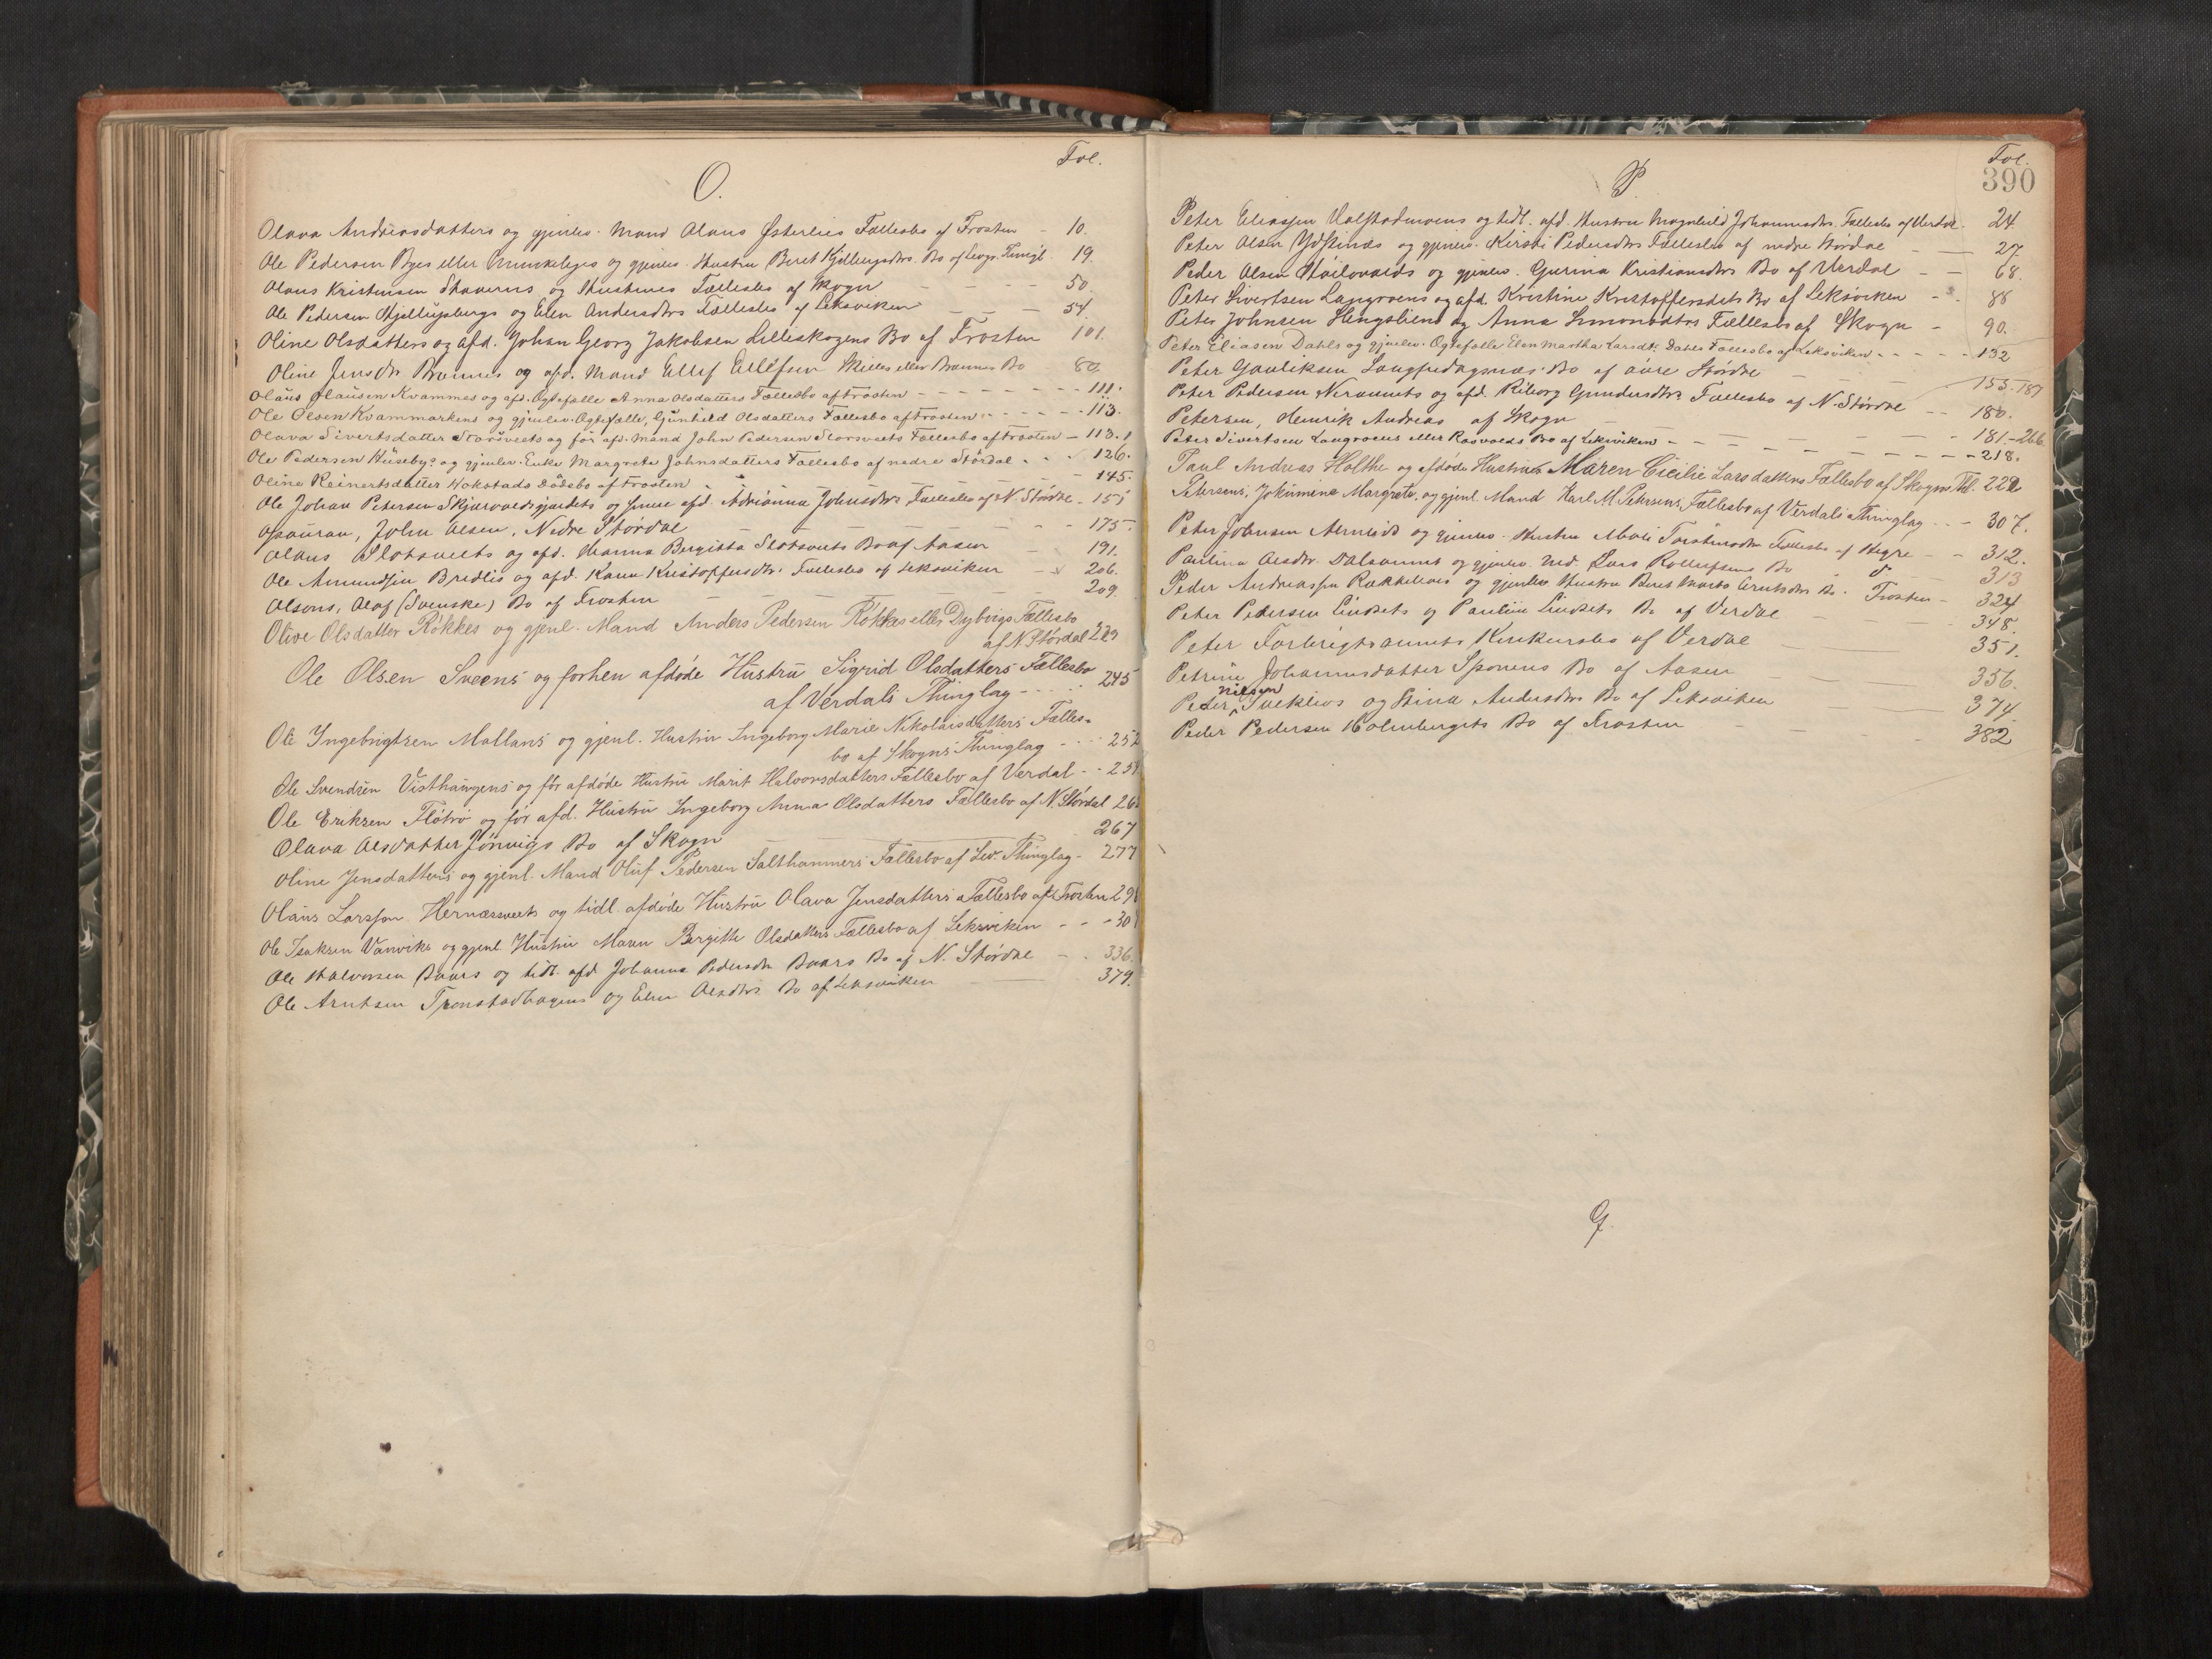 O.
Fol.
Olava Andreasdatters og gjenlev. Mand Olaus Østerlies Fællesbo af Frosten - 10.
Ole Pedersen Byes eller Munkebyes og gjenlev. Hustru Beret Kjellugsdtrs. Bo af Levgr. Thingl. 19.
Olaus Kristensen og Hustrues Fællesbo af Skogn - - - 50.
Ole Pedersen og Elen Andersdtrs Fællesbo af Leksviken - - 54.
Oline Olsdatters og afd. Johan Georg Jakobsen Lilleskogens Bo af Frosten 101.
Oline Jensdtr og afd. Mand Ellef Ellefsen eller Bo 80.
Olaus Olausen Kvammes og afd. Ægtefælle Anna Olsdatters Fællesbo af Frosten - - - - - 111.
Ole Olsen Kvammarkens og gjenlev. Ægtefælle, Gunhild Olsdatters Fællesbo af Frosten - - - - 113.
Olava Sivertsdatter Storsveets og før afd. Mand John Pedersen Storsveets Fællesbo af Frosten - 118.
Ole Pedersen Huseby's og gjenlev. Enke Margrete Johnsdatters Fællesbo af nedre Stördal - - 126.
Oline Reinertsdatter Hokstads Dødsbo af Frosten - - - 145.
Ole Johan Petersen Skjærvoldsgjerdets og afd. Adrianna Johnsdtrs Fællesbo af N. Stördal - 151
Opauran, John Olsen, Nedre Stördal - - 175.
Olaus Slotsveets og afd. Hanna Bergitta Slotsveets Bo af Aasen - 191.
Ole Amundsen Bredlis og afd. Karen Kristoffersdtr. Fællesbo af Leksviken - 206.
Olsons, Olof (Svenske) Bo af Frosten - - - 209.
Olive Olsdatter Rökkes og gjenl. Mand Anders Pedersen Rökkes eller Dybvigs Fællesbo
af N. Stördal 223
Ole Olsen Sveens og forhen afdøde Hustru Sigrid Olsdatters Fællesbo
af Verdals Thinglag - - - 245
Ole Yngebrigtsen Mollans og gjenl. Hustru Ingeborg Marie Nikolaisdatters Fælles-
bo af Skogns Thinglag - - - 252
Ole Svendsen Visthaugens og før afdøde Hustru Marit Halvorsdatters Fællesbo af Verdal - - 25
Ole Eriksen Flötrö og før afd. Hustru Ingeborg Anna Olsdatters Fællesbo af N. Stördal 26
Olava Olsdatter Jörnvigs Bo af Skogn 267
Oline Jensdatters og gjenl. Mand Oluf Pedersen Salthammers Fællesbo af Lev. Thinglag - 277
Olaus Larssen Hernæsveets og tidl. afdøde Hustru Olava Jensdatters Fællesbo af Frosten 29
Ole Isaksen Vanviks og gjenl. Hustru Maren Bergitte Olsdatters Fællesbo af Leksviken - - 30
Ole Halvorsen Baars og tidl. afd. Johanna Pedersdtr Baars Bo af N. Stördal - . 336.
Ole Arntsen Tronstadhagens og Elen Olsdtrs Bo af Leksviken 379.
P
Fol.
390
Peter Eliassen Halstadmoens og tidl. afd. Hustru Magnhild Johannesdtrs. Fællesbo af Verdal. 24.
Peter Olsen Ydstines og gjenlev. Kirsti Pedersdtrs Fællesbo af nedre Stördal - 27.
Peder Olsen og gjenlev. Gurina Kristiansdtrs Bo af Verdal - - 68.
Peter Sivertsen Langroens og afd. Kristine Kristoffersdtrs Bo af Leksviken - 88
Peter Johnsen Hengsliens og Anna Simonsdtrs Fællesbo af Skogn - 90.
Peter Eliasen Dahls og gjenlev. Ægtefælle Elen Martha Larsdtr. Dahls Fællesbo af Leksviken - - - - - 132
Peter Gauliksen Langfredagsnæs Bo af øvre Stördal - - - 153. 187
Peter Pedersen og afd. Riborg Gundersdtrs Fællesbo af N. Stördal - - 180.
Petersen, Henrik Andreas af Skogn - - - 181.-266
Peter Sivertsen Langroens eller Rosvolds Bo af Leksviken - - - - - - - 218.
Paul Andreas Holthe og afdøde Hustrus Maren Cicilie Larsdatters Fællesbo af Skogns Thl. 222
Petersens, Jokumine Margrete, og gjenl. Mand Karl M. Petersens, Fællesbo af Verdals Thinglag - - 307.
Peter Johnsen og gjenlev. Hustru Marit Torstensdtr Fællesbo af Hegre - - 312.
Paulina Olsdtr. Dalsaunet og gjenlev. Md. Lars Rollefsens Bo d 313
Peder Andreassen og gjenlev. Hustru Beret Marta Arntsdtrs Bo. Frosten - 324.
Peter Petersen Lindsets og Pauline Lindsets Bo af Verdal - - 348.
Peter Forbrigtsaunets Konkursbo af Verdal 351.
Petrine Johannesdatter Sponens Bo af Aasen 356.
Nilsen
Peder og Stina Andersdtrs Bo af Leksviken 374.
Peder Pedersen Holmbergets Bo af Frosten - - 382
Q.